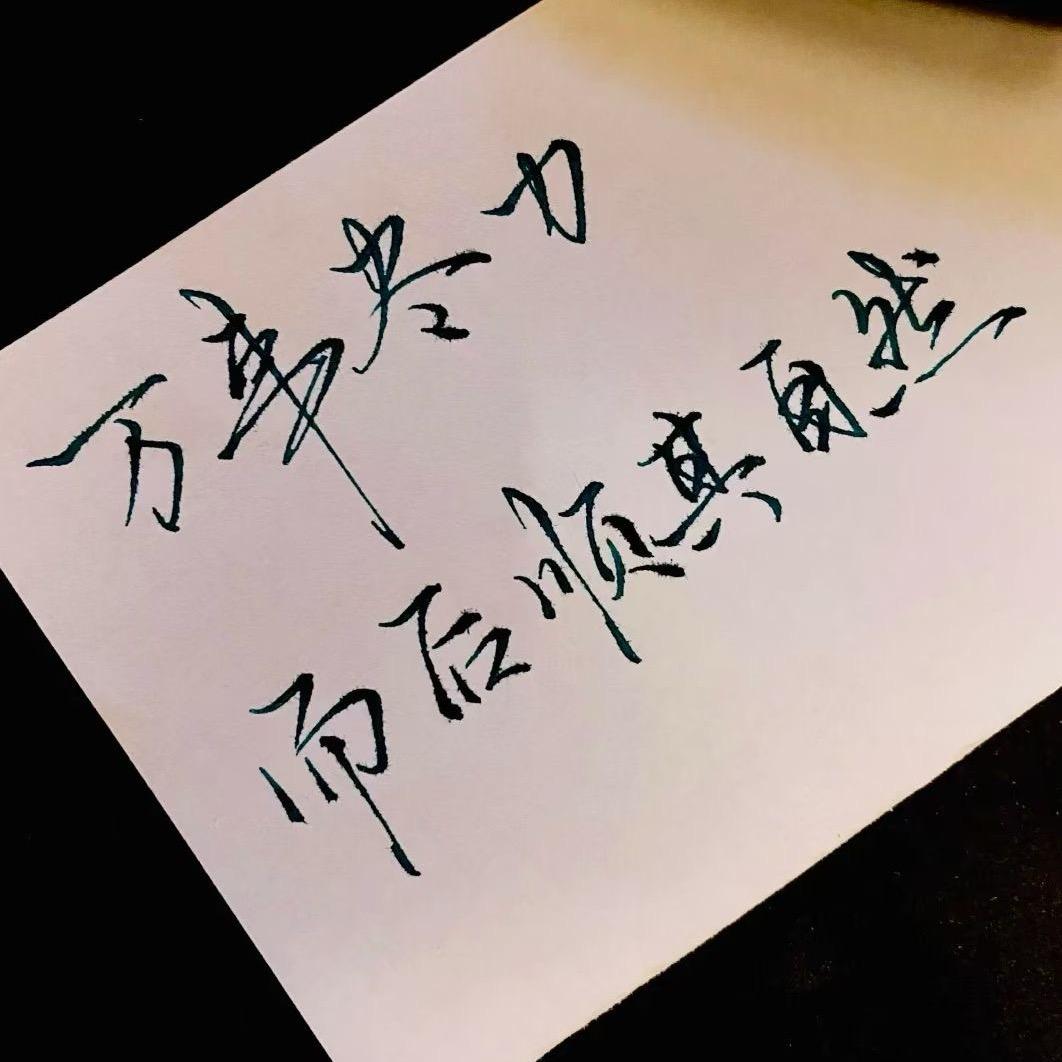 万事尽力
而后顺其自然